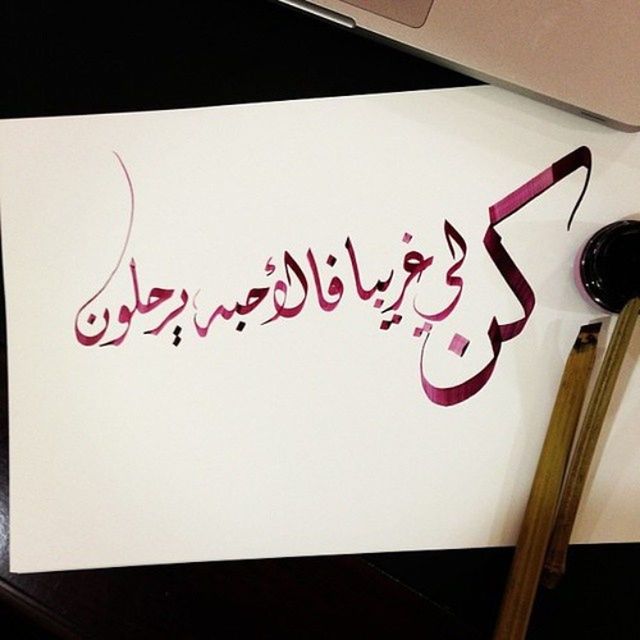 كن لي غريبا فالأحبه يرحلون